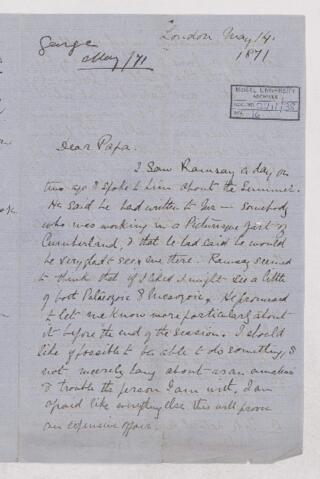 George
May/71
London May 14.
1871
McGILL UNIVERSITY
ARCHIVES
ACC. NO.
REF. 16
Dear Papa.
I saw Ramsay a day or
two ago & spoke to him about the Summer.
He said he had written to Mr — somebody
who was working in a Picturesque part of
Cumberland, & that he had said he would
be very glad to see me there. Ramsay seemed
to think that if I liked I might see a little
of both Palaeozoic & Mesozoic. He promised
to let me know more particulars about
it before the end of the Session. I should
like if possible to be able to do something, &
not merely hang about as an amateur
& trouble the person I am with. I am
afraid like everything else this will prove
an expensive affair.